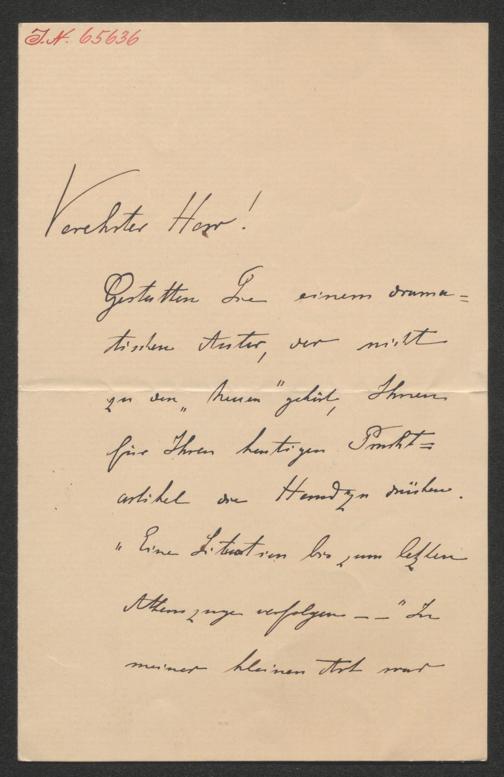 J.N. 65636
Verehrter Herr!
Gestatten Sie einem drama=
tischen Autor, der nicht
zu den „Neuen" gehört, Ihnen
für Ihren heutigen Pracht=
artikel die Hand zu drücken.
„Eine Situation bis zum letzten
Athemzuge verfolgen – –" In
meiner kleinen Art war